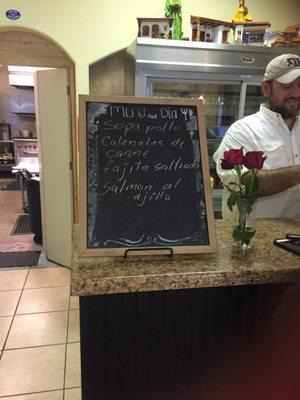 MENU del DIA
Sopa pollo
Calenales de
carne
Fajita salteado
Salmon al
ajillo